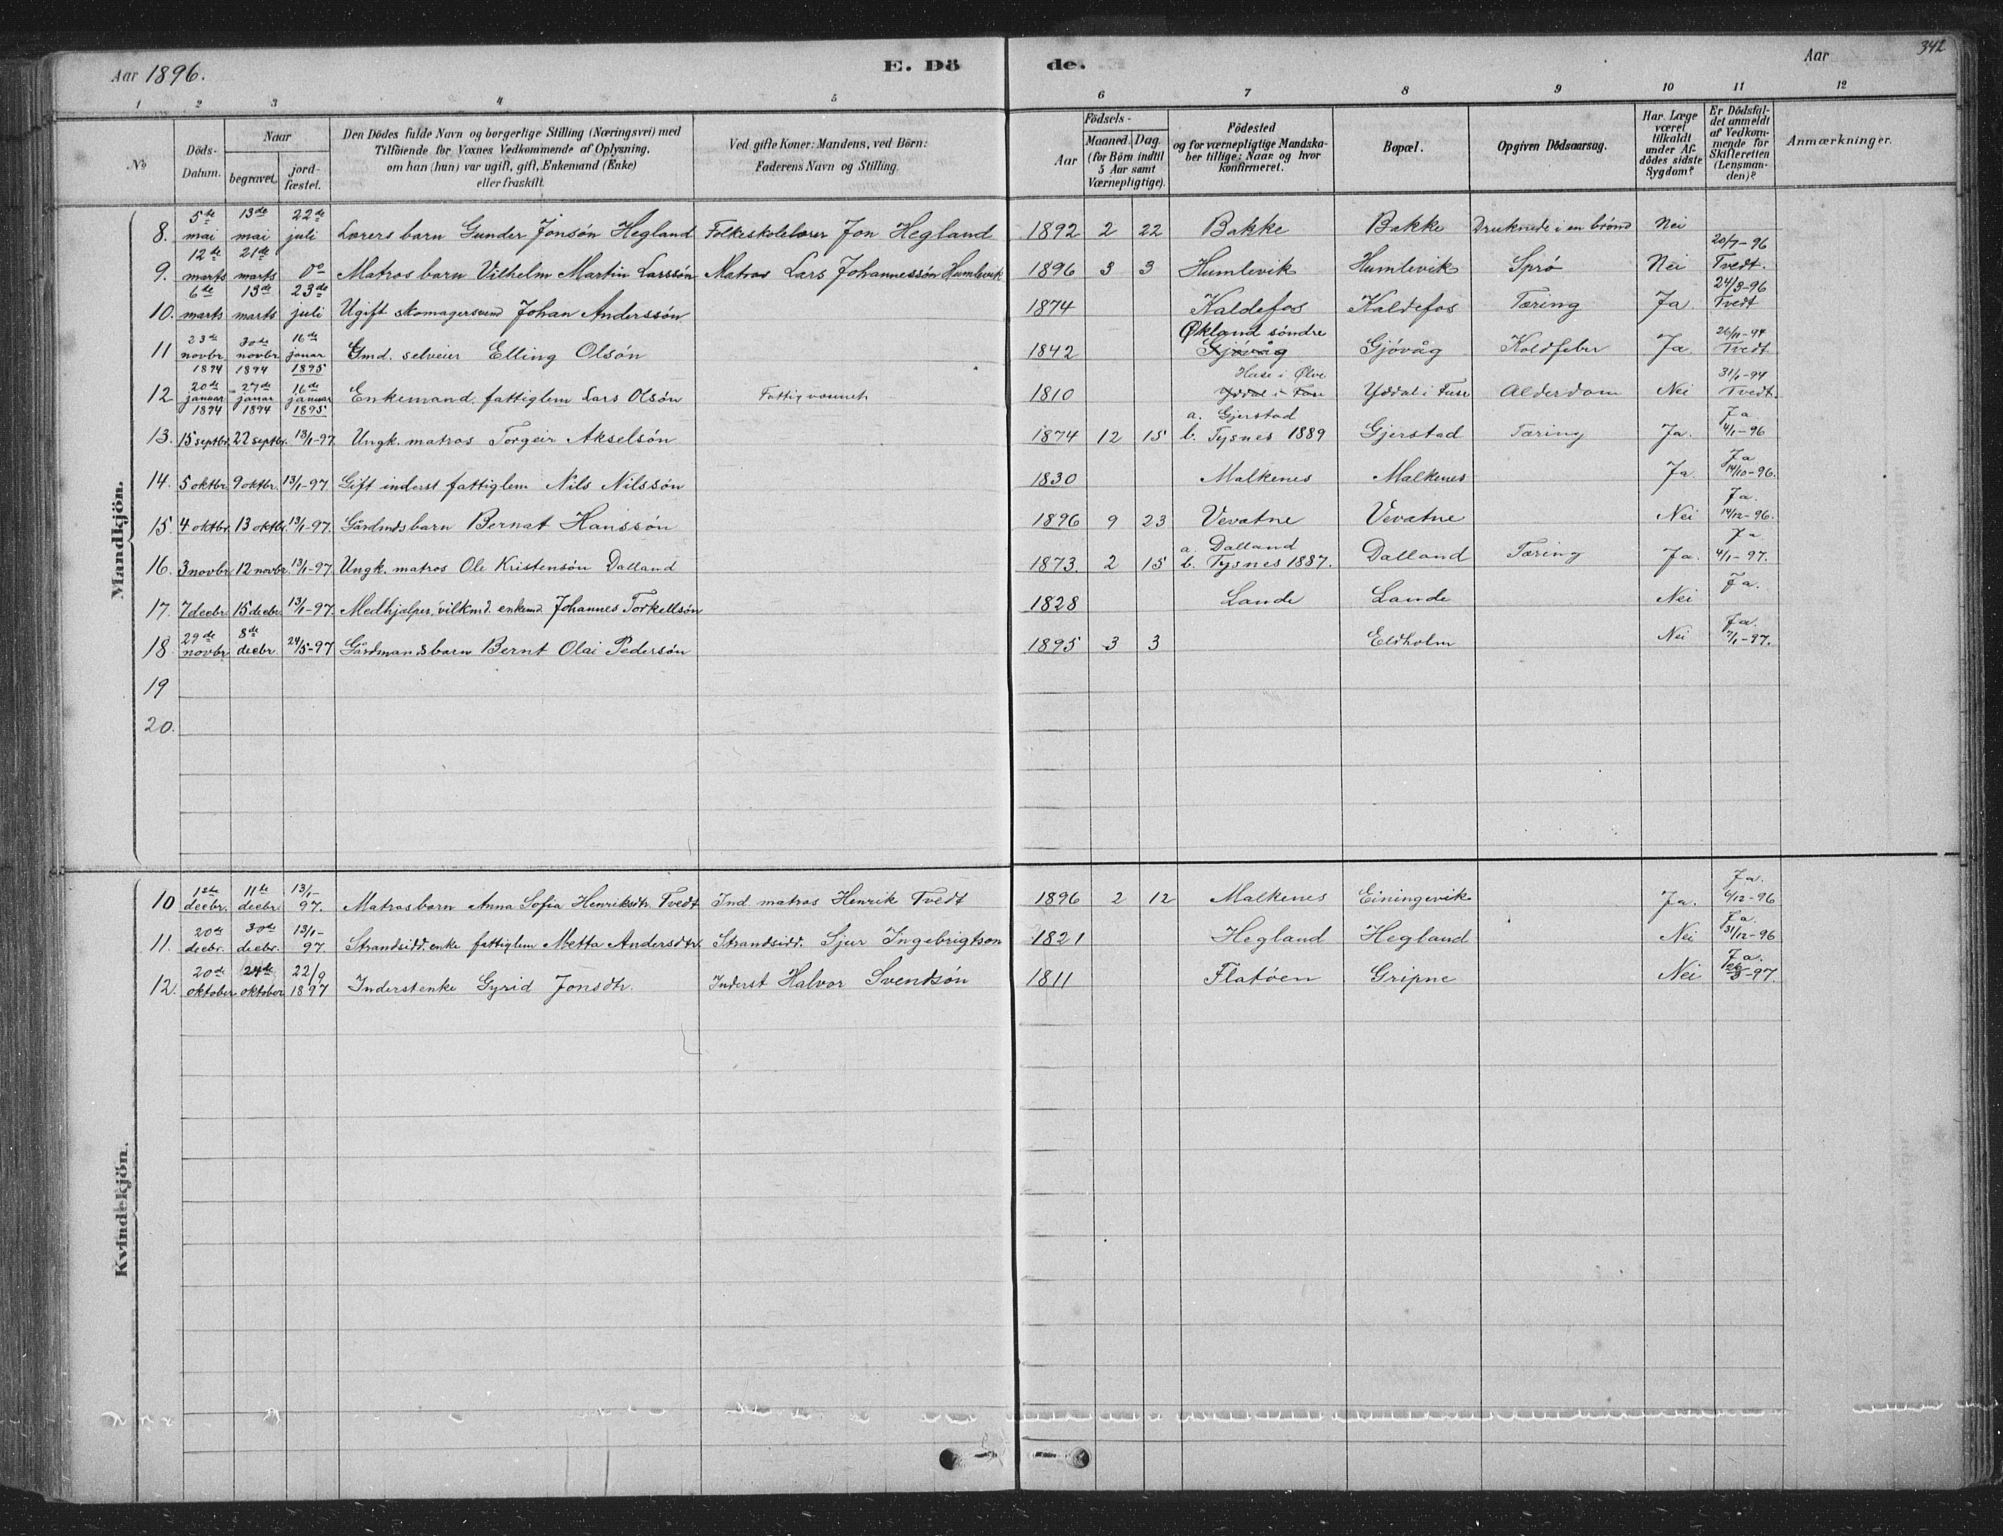 Aar 1896.
E. Dö
de.
Aar
342
1 2 3 4 5 6 7 8 9 10 11 12
No
Döds-Datum.
Naar
begravet.
jord-fæstet.
Den Dödes fulde Navn og borgerlige Stilling (Næringsvei) med
Tilföiende for Voxnes Vedkommende af Oplysning,
om han (hun) var ugift, gift, Enkemand (Enke)
eller fraskilt.
Ved gifte Koner: Mandens, ved Börn:
Faderens Navn og Stilling.
Födsels-
Aar
Maaned. Dag.
(for Börn indtil
5 Aar samt
Værnepligtige).
Födested
og for værnepligtige Mandska-
ber tillige: Naar og hvor
konfirmeret.
Bopæl.
Opgiven Dödsaarsag.
Har Læge
været
tilkaldt
under Af-
dödes sidste
Sygdom?
Er Dödsfal-
det anmeldt
af Vedkom-
mende for
Skifteretten
(Lensman-
den)?
Anmærkninger.
Mandkjön.
8. 5de mai 13de mai 22de juli Lærers barn Gunder Jonsøn Hegland Folkeskolelærer Jon Hegland 1892 2 22 Bakke Bakke Druknede i en brønd Nei
9. 12de marts 21de marts Do Matros barn Vilhelm Martin Larssøn Matros Lars Johannessøn Humlevik 1896 3 3 Humlevik Humlevik Sprø Nei 20/7-96 Tvedt.
10. 6de marts 13de marts 23de juli Ugift skomagersvend Johan Anderssøn 1874 Kaldefos Kaldefos Tæring Ja 24/3-96 Tvedt
11 23de novbr 1894 30de novbr 1894 16de januar 1895 Gmd. selveier Elling Olsøn 1842 Økland søndre Gjøvåg Gjøvåg Koldfeber Ja 26/11-94 Tvedt
12 20de januar 1894 27de januar 1894 16de januar 1895 Enkemand, fattiglem Lars Olsøn Fattigvæsnet 1810 Huse i Ølve Yddal i Fuse Yddal i Fuse Alderdom Nei 31/1-94 Tvedt.
13. 15 septbr. 22 septbr. 13/1-97. Ungk. matros Torgeir Akselsøn 1874 12 15 a. Gjerstad b. Tysnes 1889 Gjerstad Tæring Ja. Ja 4/1-96
14. 5 oktbr. 9 oktbr. 13/1-97. Gift inderst fattiglem Nils Nilssøn 1830 Malkenes Malkenes Ja. Ja 14/10-96.
15. 4 oktbr. 13 oktbr. 13/1-97. Gårdmdsbarn Bernat Hanssøn 1896 9 23 Vevatne Vevatne Nei Ja. 14/12-96.
16. 3 novbr. 12 novbr. 13/1-97. Ungk. matros Ole Kristensøn Dalland 1873. 2 15 a. Dalland b. Tysnes 1887. Dalland Tæring Ja. Ja 4/1-97.
17. 7 decbr. 15 decbr. 13/1-97. Medhjælper, vilkmd. enkemd. Johannes Torkellsøn 1828 Lande Lande Nei Ja.
18. 29de novbr 8de decbr 24/5-97 Gårdmandsbarn Bernt Olai Pedersøn 1895 3 3 Eldholm Nei Ja. 7/1-97.
19
20.
Kvindekjön.
10 1ste decbr. 11te decbr. 13/1-97. Matrosbarn Anna Sofia Henriksdtr. Tvedt Ind. matros Henrik Tvedt 1896 2 12 Malkenes Einingevik Ja. Ja. 6/12-96
11. 20de decbr. 30de decbr. 13/1-97. Strandsidd. enke fattiglem Metta Andersdtr. Strandsidd. Sjur Ingebrigtson 1821 Hegland Hegland Nei Ja. 31/12-96
12. 20de oktober 24de oktober 22/9 1897 Inderstenke Gyrid Jonsdtr. Inderst Halvor Svendsøn 1811 Flatøen Gripne Nei Ja.